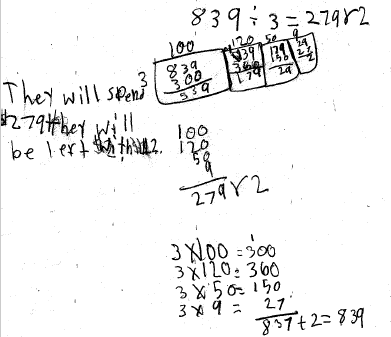 839 ÷ 3 = 279 r 2
100 120 50 9
3 839 539 179 29
300 360 150 27
539 179 29 2
They will spend
$279 they will
be left with 2.
100
120
50
9
279 r 2
3 × 100 = 300
3 × 120 = 360
3 × 50 = 150
3 × 9 = 27
837 + 2 = 839